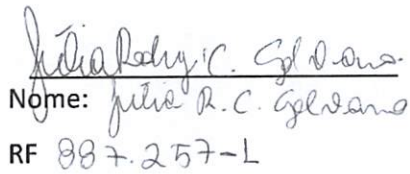 Júlia Rodrig. C. Galdiano
Nome: Júlia R. C. Galdiano
RF 887.257-L